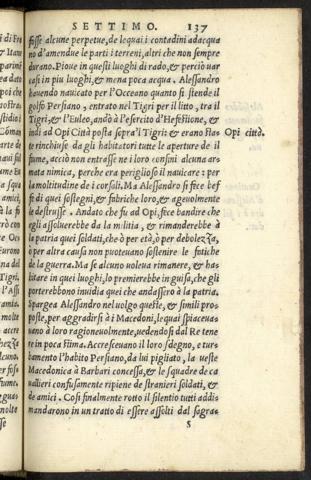 SETTIMO. 137
fusse alcune perpetue, de lequai i contadini adacqua
no d'amendue le parti i terreni, altri che non sempre
durano. Pioue in questi luoghi di rado, & perciò uar
casi in piu luoghi, & mena poca acqua. Alessandro
hauendo nauicato per l'Occeano quanto si stende il
golfo Persiano, entrato nel Tigri per il lito, tra il
Tigri, & l'Euleo, andò à l'esercito d'Hefestione, &
indi ad Opi Città posta sopra'l Tigri: & erano state
Opi città.
te rinchiuse da gli habitatori tutte le aperture de il
fiume, acciò non entrasse ne i loro confini alcuna ar
mata nimica, perche era periglioso il nauicare: per
la moltitudine de i corsali. Ma Alessandro si fece bef
fe di quei sostegni, & fabriche loro, & ageuolmente
le destrusse. Andato che fu ad Opi, fece bandire che
egli assoluerebbe da la militia, & rimanderebbe à
la patria quei soldati, che ò per età, ò per debolezza,
ò per altra causa non poteuano sostenire le fatiche
de la guerra. Ma se alcuno uoleua rimanere, & ha-
bitare in quei luoghi, lo premierebbe in guisa, che gli
porterebbono inuidia quei che andassero à la patria.
Spargea Alessandro nel uolgo queste, & simili pro-
poste, per aggradirsi à i Macedoni, lequai spiaceua-
no à loro ragioneuolmente, uedendosi dal Re tene
re in poca stima. Accresceuano il loro sdegno, e tur-
bamento l'habito Persiano, da lui pigliato, la ueste
Macedonica à Barbari concessa, & le squadre de ca
uallieri confusamente ripiene de stranieri soldati, &
de amici. Cosi finalmente rotto il silentio tutti addi-
mandarono in un tratto di essere assolti dal sagra-
S